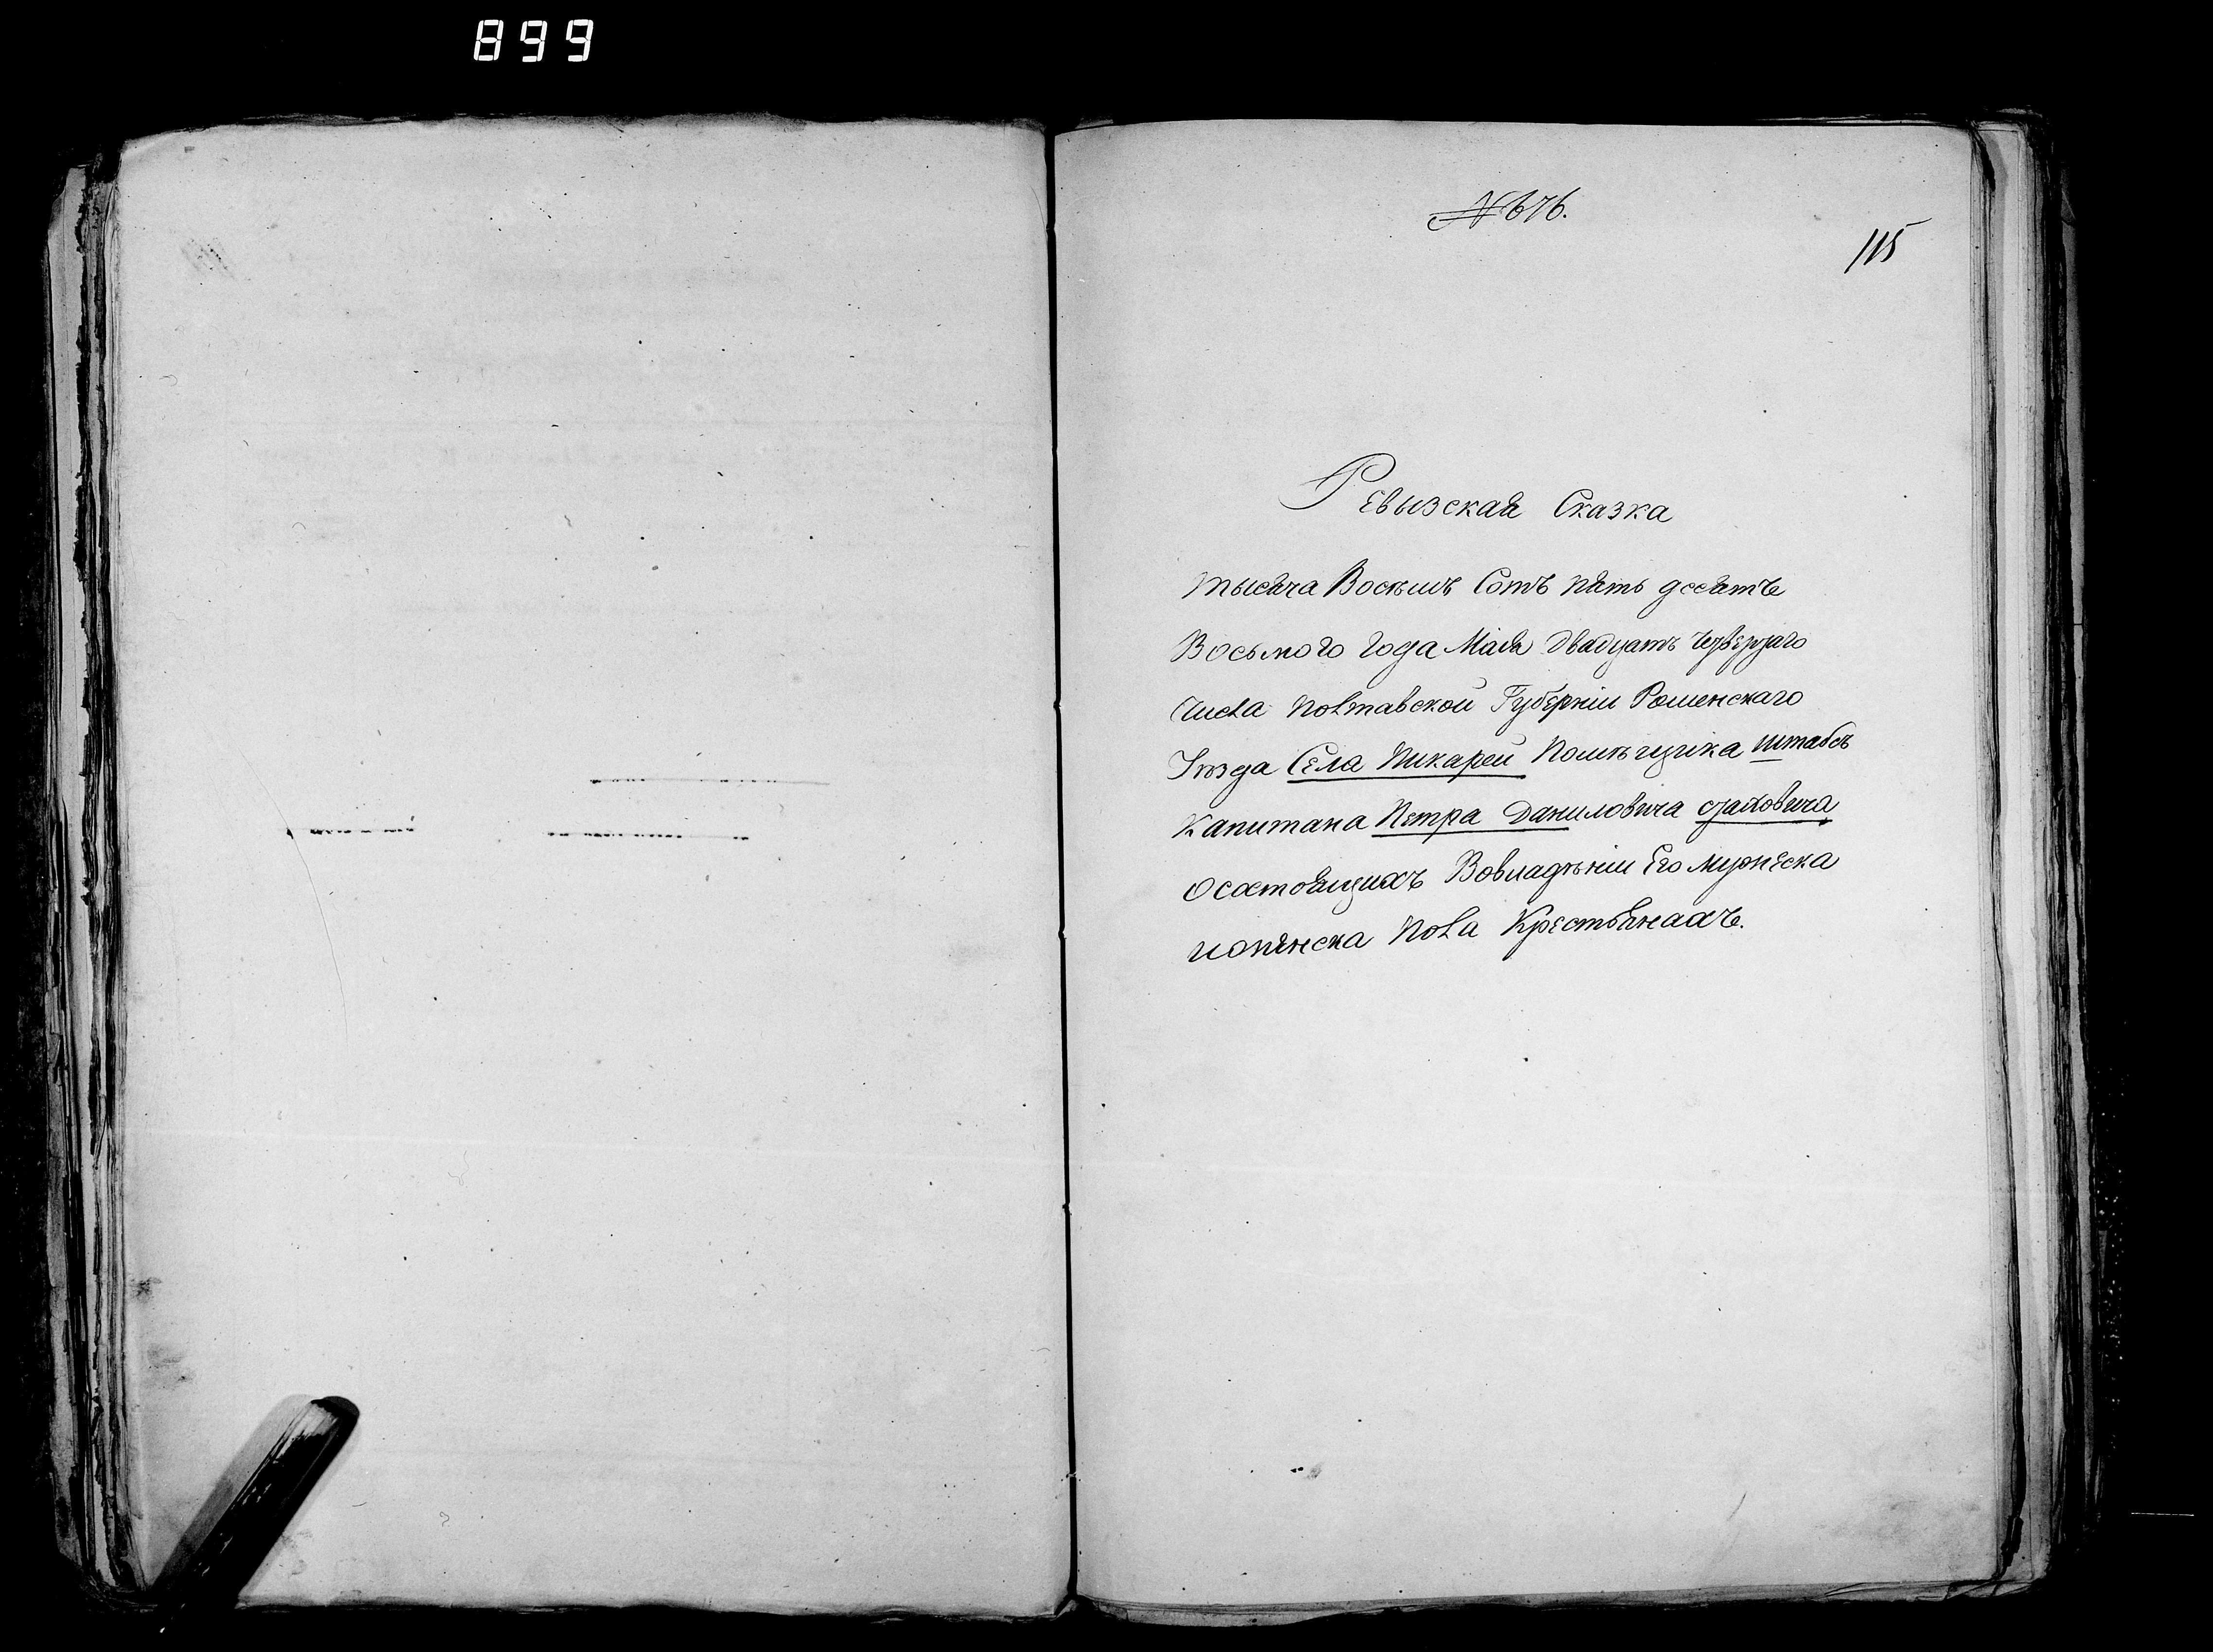 899
№ 676.
115
Ревызская Сказка
тысяча Восѣмъ Сотъ пять десятъ
Восьмого года Маія двадцать четвертаго
числа Полтавской Губерніи Роменскаго
Уѣзда Села Пикарей Помѣщика штабсъ
Капитана Петра Даниловича
осостоящихъ Вовладѣніи Его мужеска
иженска Пола Крестьянахъ.